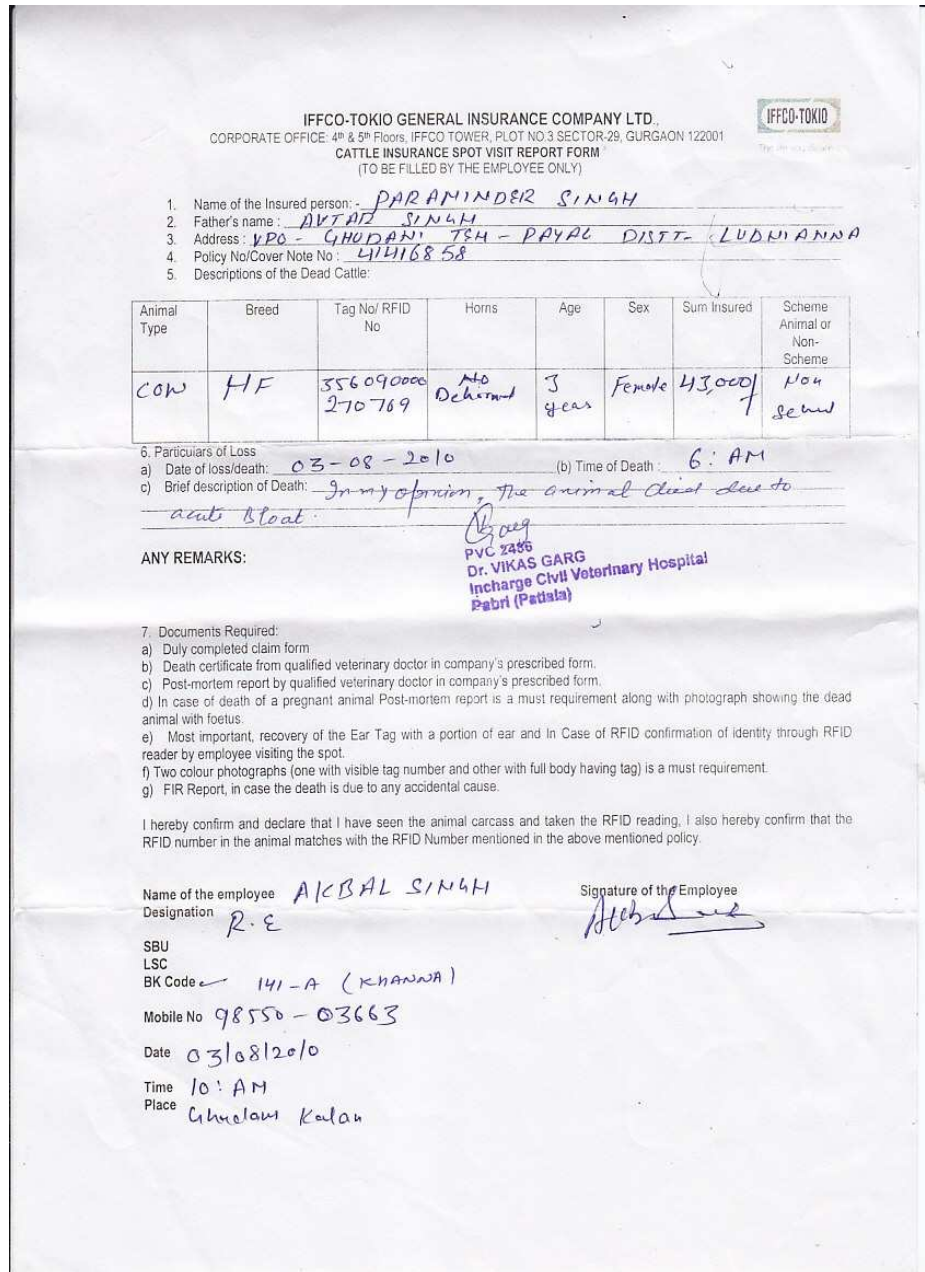 IFFCO-TOKIO GENERAL INSURANCE COMPANY LTD.,
IFFCO-TOKIO
CORPORATE OFFICE: 4th & 5th Floors, IFFCO TOWER, PLOT NO.3 SECTOR-29, GURGAON 122001
CATTLE INSURANCE SPOT VISIT REPORT FORM
(TO BE FILLED BY THE EMPLOYEE ONLY)
1. Name of the Insured person: - PARAMINDER SINGH
2. Father's name : AVTAR SINGH
3. Address : VPO - GHUDANI TEH - PAYAL DISTT- LUDHIANNA
4. Policy No/Cover Note No : 41416858
5. Descriptions of the Dead Cattle:
Animal Type Breed Tag No/ RFID No Horns Age Sex Sum Insured Scheme Animal or Non-Scheme
COW HF 356090000 270769 NO Dehorned 3 years Female 43,000/ Non
6. Particulars of Loss
a) Date of loss/death: 03-08-2010 (b) Time of Death : 6: AM
c) Brief description of Death: In my opinion, The animal died due to
acute Bloat.
ANY REMARKS:
PVC 2486
Dr. VIKAS GARG
Incharge Civil Veterinary Hospital
Pabri (Patiala)
7. Documents Required:
a) Duly completed claim form
b) Death certificate from qualified veterinary doctor in company's prescribed form.
c) Post-mortem report by qualified veterinary doctor in company's prescribed form.
d) In case of death of a pregnant animal Post-mortem report is a must requirement along with photograph showing the dead
animal with foetus.
e) Most important, recovery of the Ear Tag with a portion of ear and In Case of RFID confirmation of identity through RFID
reader by employee visiting the spot.
f) Two colour photographs (one with visible tag number and other with full body having tag) is a must requirement.
g) FIR Report, in case the death is due to any accidental cause.
I hereby confirm and declare that I have seen the animal carcass and taken the RFID reading, I also hereby confirm that the
RFID number in the animal matches with the RFID Number mentioned in the above mentioned policy.
Name of the employee AKBAL SINGH Signature of the Employee
Designation R.E
SBU
LSC
BK Code 141-A (KHANNA)
Mobile No 98550-03663
Date 03/08/2010
Time 10: AM
Place Ghudani Kalan